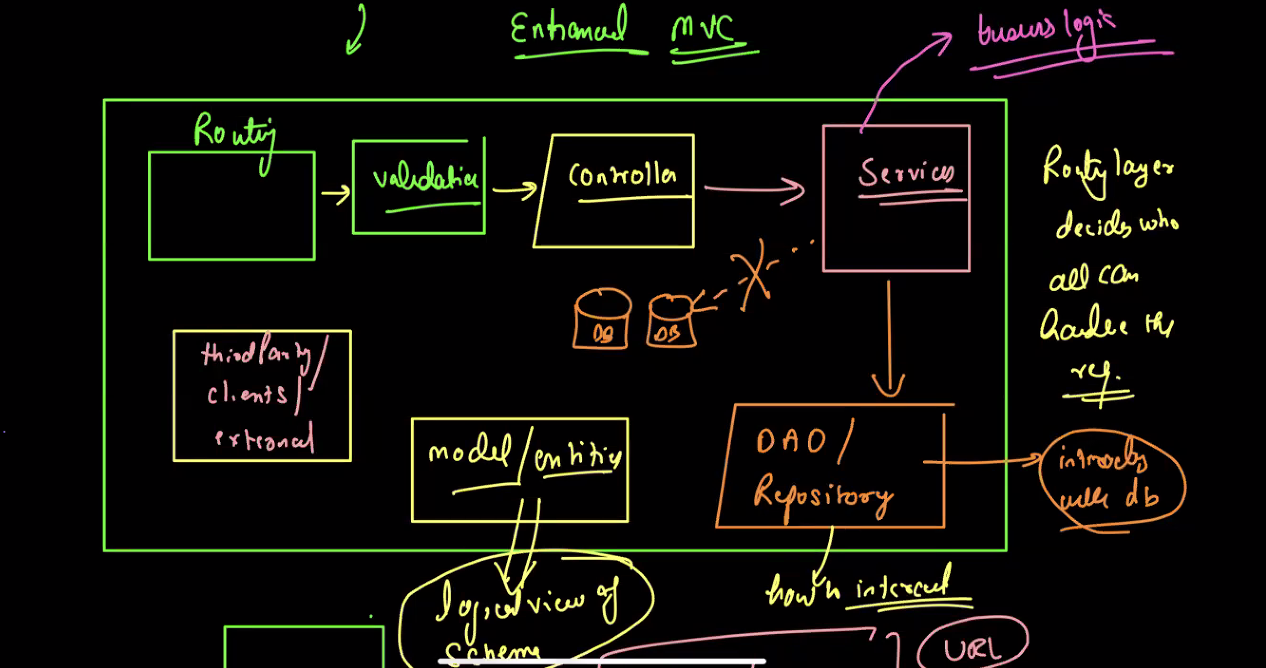 Enhanced MVC
business logic
Routing
validation
Controller
Services
Routing layer
decides who
all can
handle the
req.
DB
DB
third party/
clients/
external
model/entities
DAO/
Repository
interacts
with db
logical view of
schema
how to interact
URL